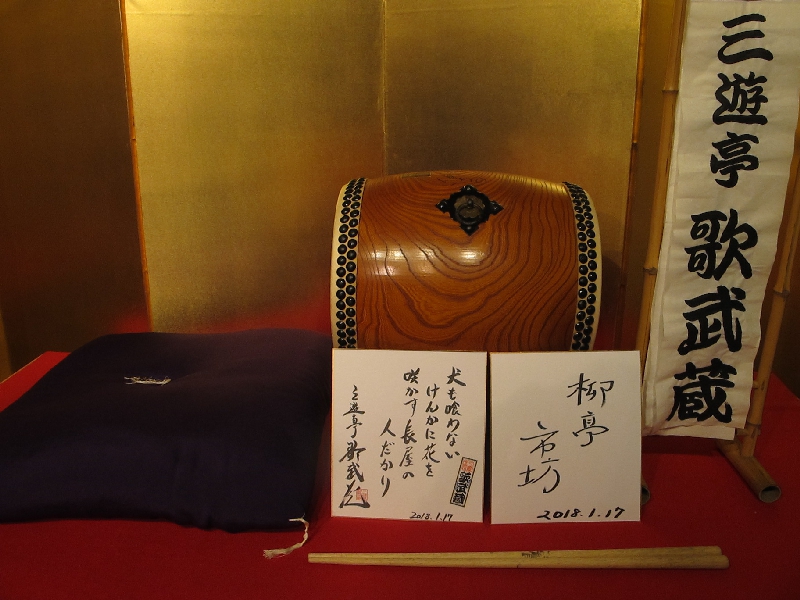 三遊亭 歌武蔵
犬も喰わない
けんかに花を
咲かす長屋の
人だかり
三遊亭歌武蔵
歌武蔵
2018.1.17
柳亭
市坊
2018.1.17